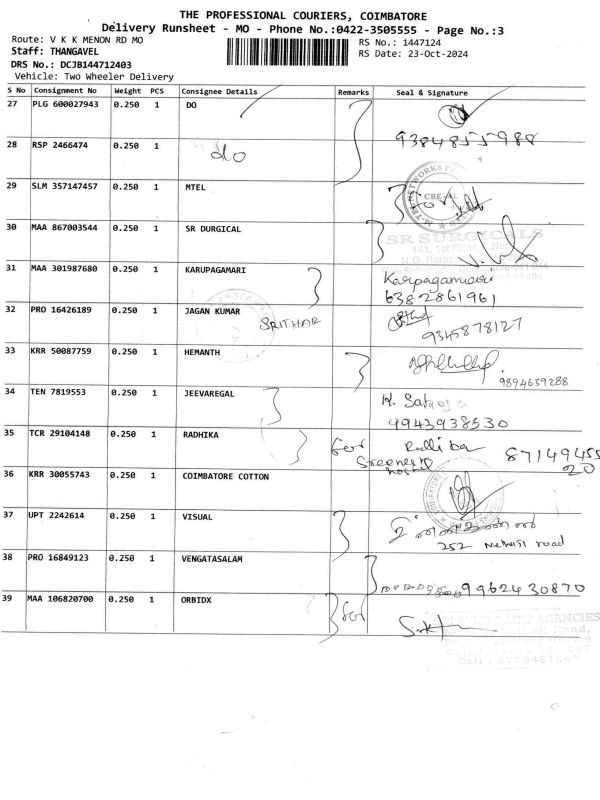 THE PROFESSIONAL COURIERS, COIMBATORE
Delivery Runsheet - MO - Phone No.:0422-3505555 - Page No.:3
Route: V K K MENON RD MO
RS No.: 1447124
Staff: THANGAVEL
RS Date: 23-Oct-2024
DRS No.: DCJB144712403
Vehicle: Two Wheeler Delivery
S No Consignment No Weight PCS Consignee Details Remarks Seal & Signature
27 PLG 600027943 0.250 1 DO
9384855988
28 RSP 2466474 0.250 1 do
29 SLM 357147457 0.250 1 MTEL
CBE
for
30 MAA 867003544 0.250 1 SR DURGICAL
SR SURGICALS
31 MAA 301987680 0.250 1 KARUPAGAMARI Karpagamari
6382861961
32 PRO 16426189 0.250 1 JAGAN KUMAR
SRITHAR 9345878127
33 KRR 50087759 0.250 1 HEMANTH
9894639288
34 TEN 7819553 0.250 1 JEEVAREGAL
9943938530
35 TCR 29104148 0.250 1 RADHIKA for Radhika 8714945520
36 KRR 30055743 0.250 1 COIMBATORE COTTON
37 UPT 2242614 0.250 1 VISUAL
252 Nehru road
38 PRO 16849123 0.250 1 VENGATASALAM
9962430870
39 MAA 106820700 0.250 1 ORBIDX for
AGENCIES